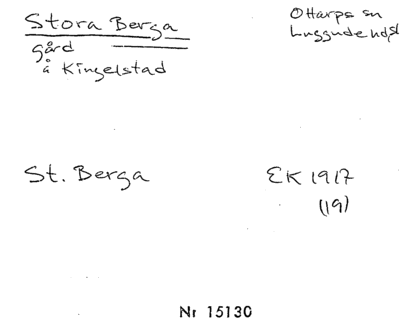 Stora Berga
Ottarps sn
gård
Luggude hd
å Kingelstad
St. Berga
EK 1917
(19)
Nr 15130